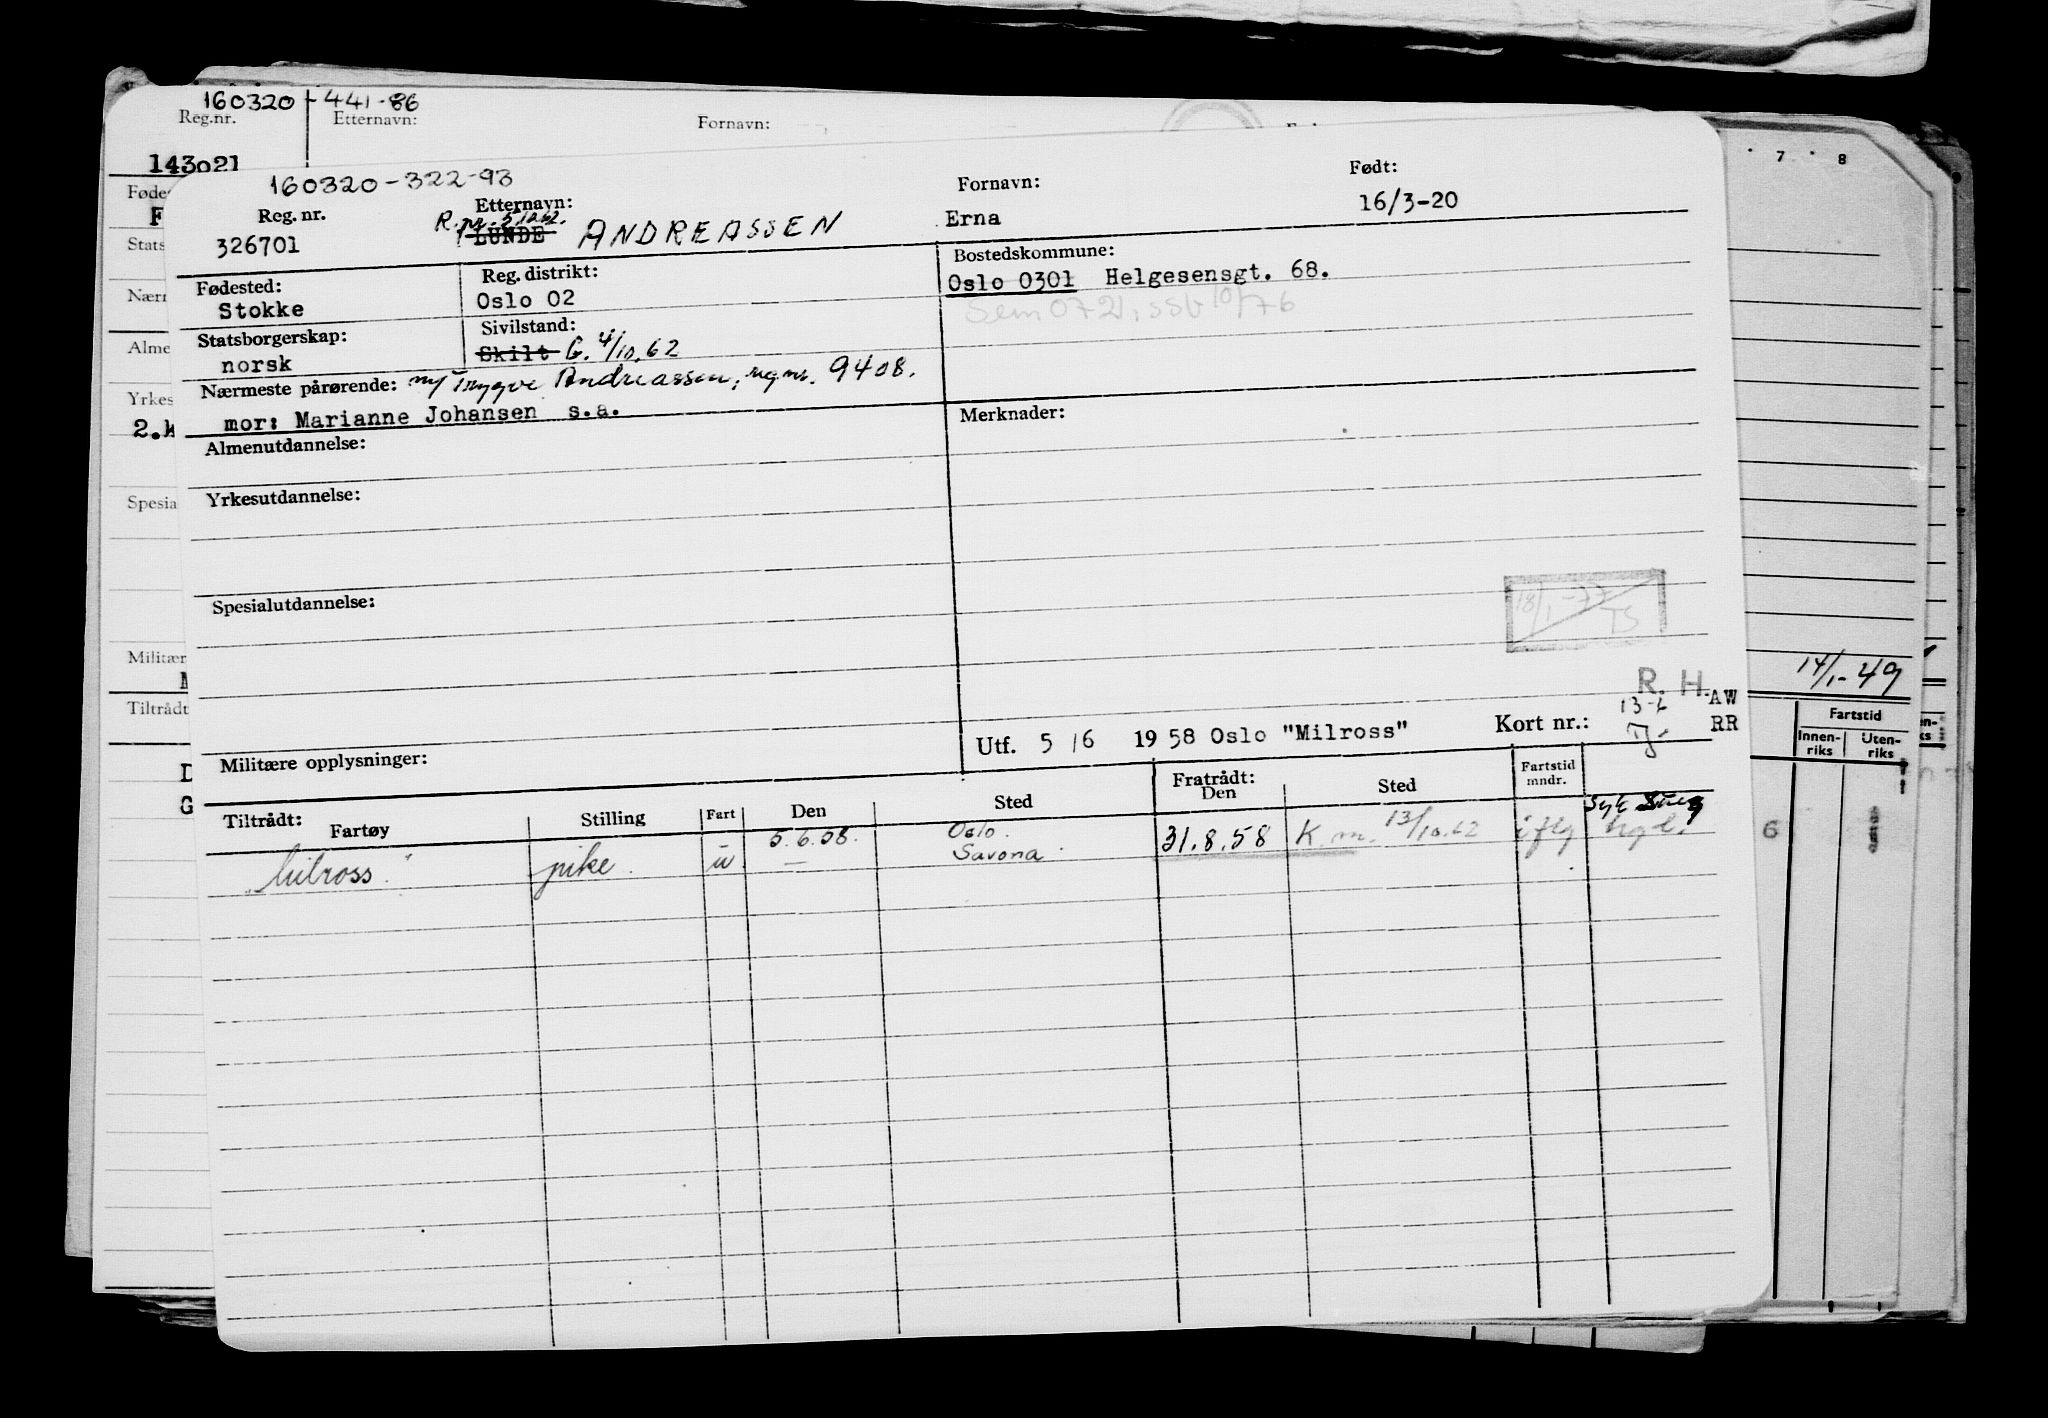 160320-441-86
Reg.nr. Etternavn: Fornavn:
143021
7 8
160320-322-93
Reg. nr. Etternavn: Fornavn: Født:
R. pr. 5.10.62.
326701 LUNDE ANDREASSEN Erna 16/3-20
Fødested: Reg. distrikt: Bostedskommune:
Stokke Oslo 02 Oslo 0301 Helgesensgt. 68.
Sem 0721, SSV 10/76
Statsborgerskap: Sivilstand:
norsk Skilt G. 4/10.62
Nærmeste pårørende: m/ Trygve Andreassen, reg nr. 9408.
mor: Marianne Johansen s.a. Merknader:
Almenutdannelse:
Yrkesutdannelse:
Spesialutdannelse:
18/1-77 TS
14/1-49
R. H. AW
13-6 RR
Militære opplysninger: Utf. 5/6 1958 Oslo "Milross" Kort nr.:
Tiltrådt: Fratrådt:
Fartøy Stilling Fart Den Sted Den Sted Fartstid mndr.
"Milross" pike u 5.6.58. Oslo. 31.8.58 K.m. 13/10.62 iflg hgl.
— Savona
Fartstid
Innen-riks Uten-riks
6